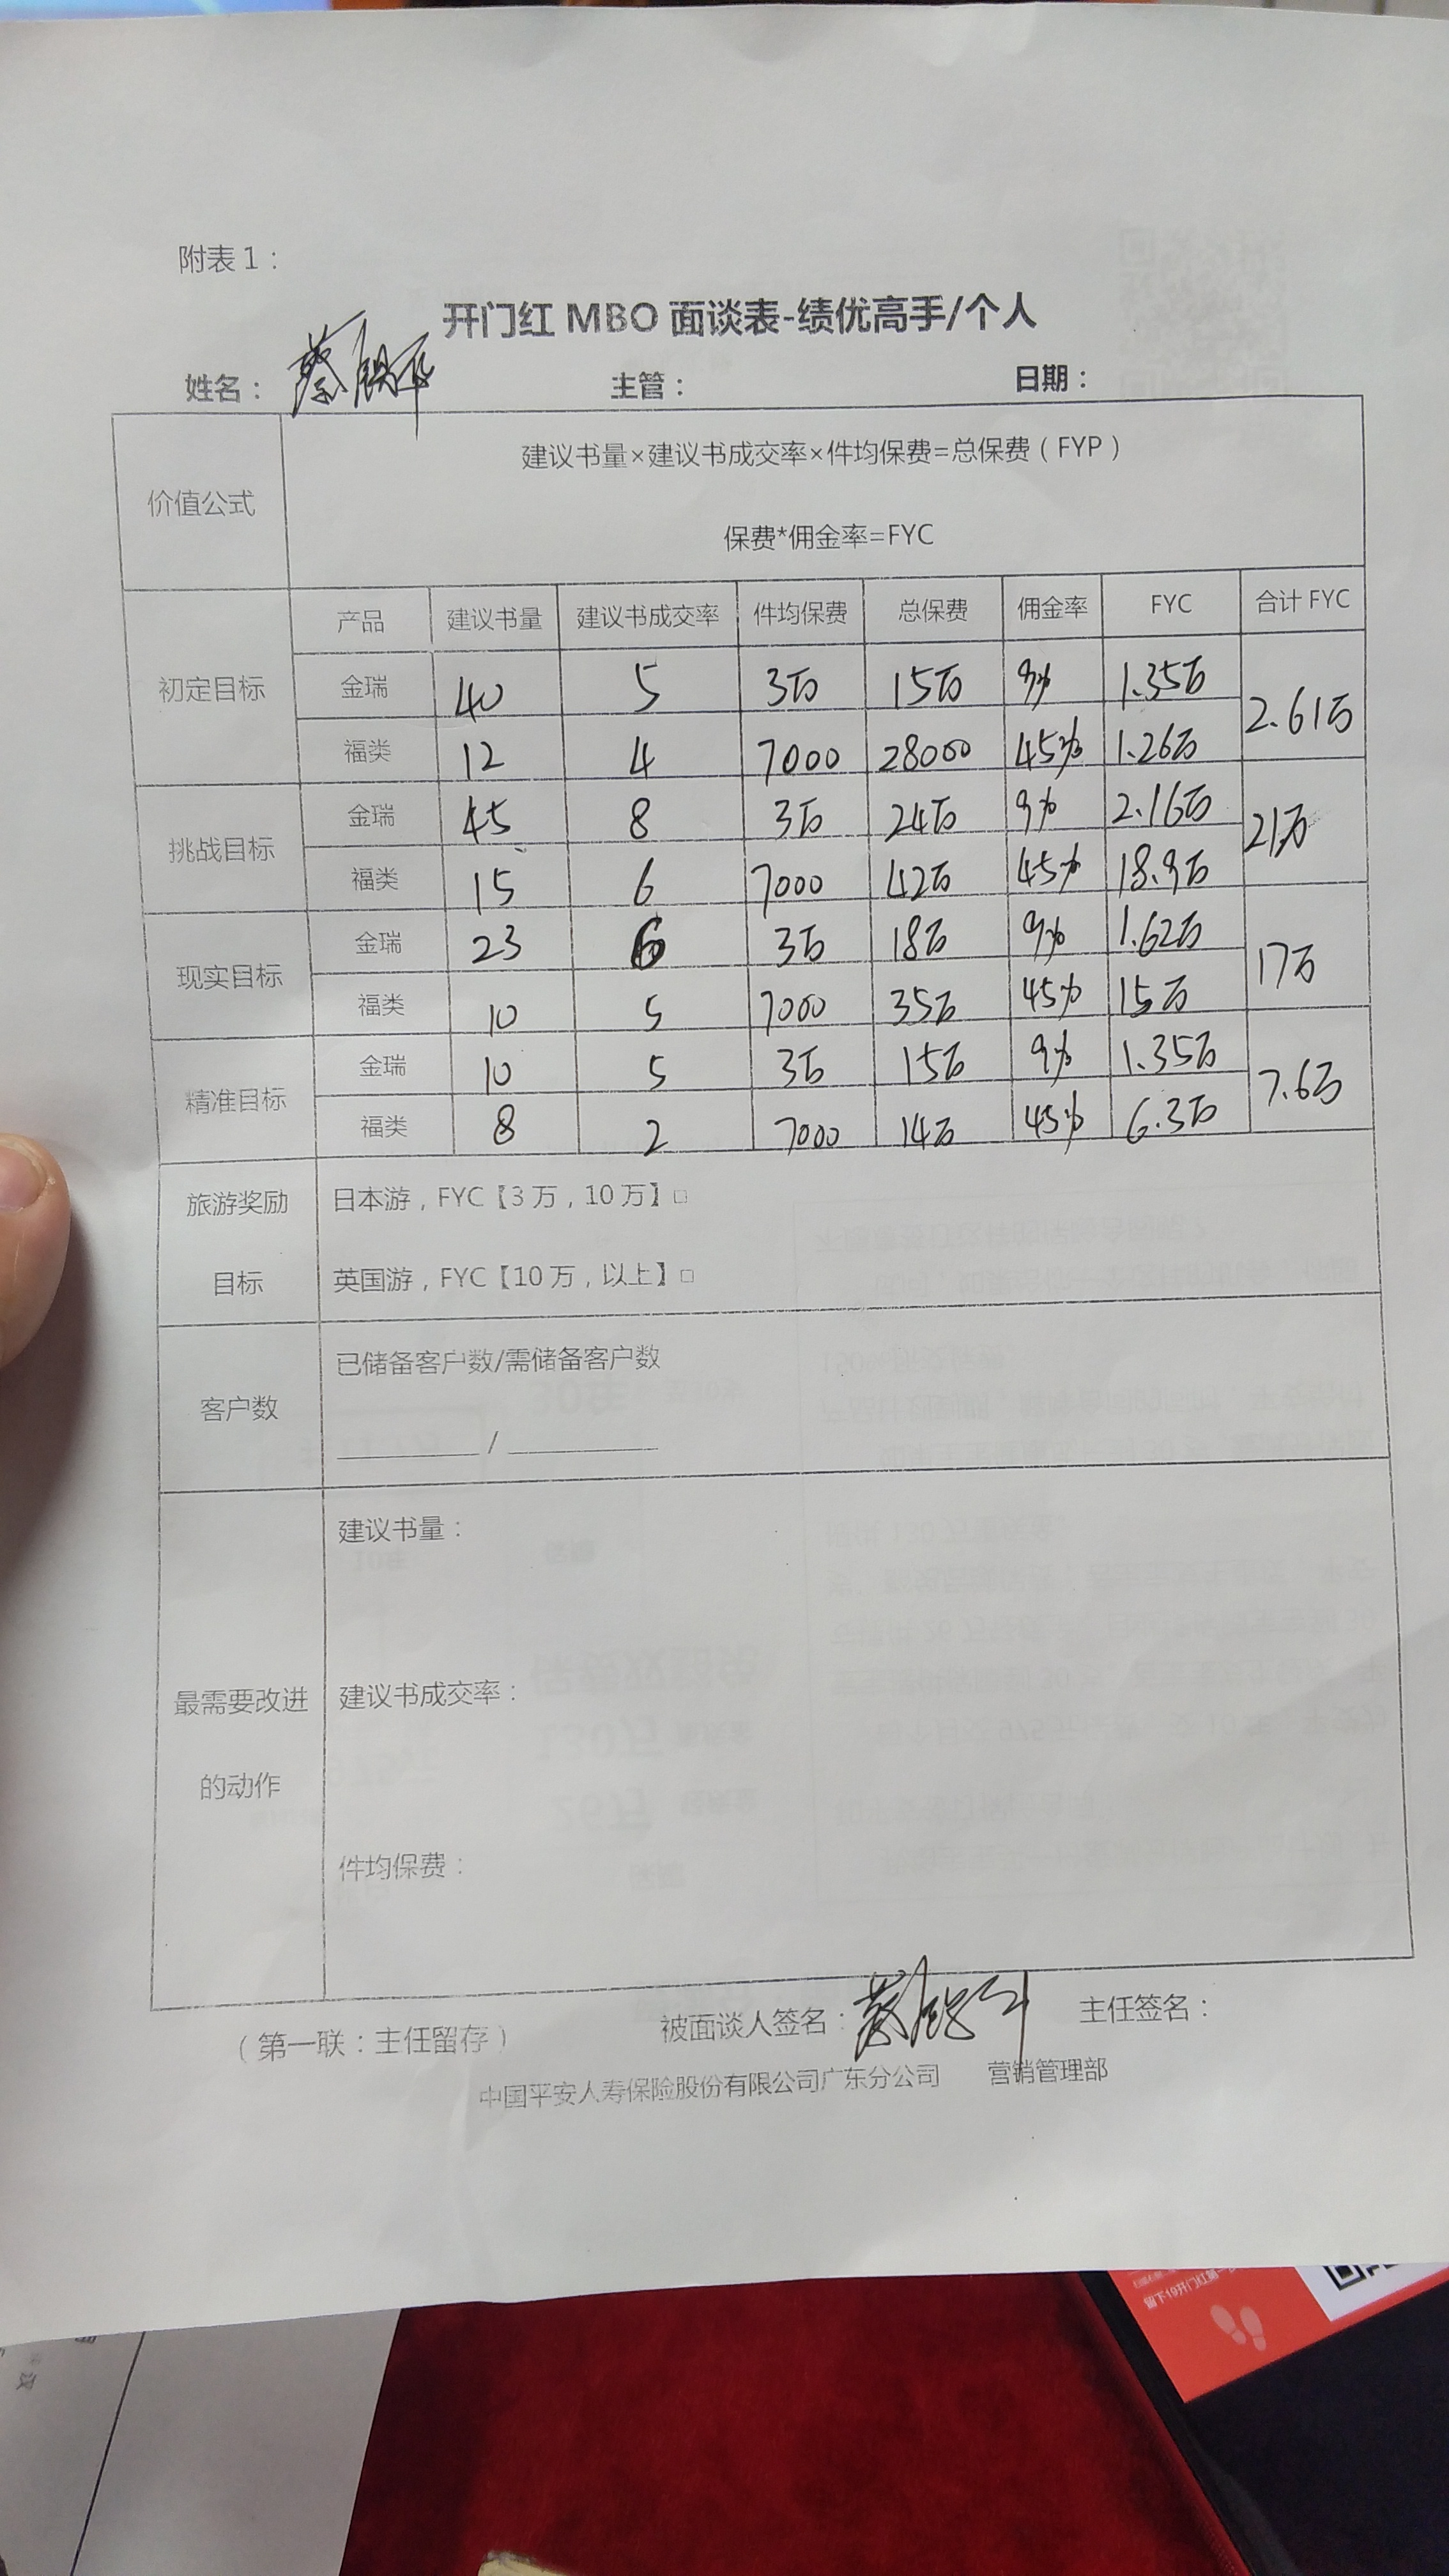 附表1：
开门红 MBO 面谈表-绩优高手/个人
姓名： 蔡 主管： 日期：
价值公式
建议书量×建议书成交率×件均保费=总保费（FYP）
保费*佣金率=FYC
初定目标
产品 建议书量 建议书成交率 件均保费 总保费 佣金率 FYC 合计 FYC
金瑞 40 5 3万 15万 9% 1.35万 2.61万
福类 12 4 7000 28000 45% 1.26万
挑战目标
金瑞 45 8 3万 24万 9% 2.16万 21万
福类 15 6 7000 42万 45% 18.9万
现实目标
金瑞 23 6 3万 18万 9% 1.62万 17万
福类 10 5 7000 35万 45% 15万
精准目标
金瑞 10 5 3万 15万 9% 1.35万 7.6万
福类 8 2 7000 14万 45% 6.3万
旅游奖励
目标
日本游，FYC【3万，10万】□
英国游，FYC【10万，以上】□
客户数
已储备客户数/需储备客户数
/
最需要改进
的动作
建议书量：
建议书成交率：
件均保费：
（第一联：主任留存） 被面谈人签名： 主任签名：
中国平安人寿保险股份有限公司广东分公司 营销管理部